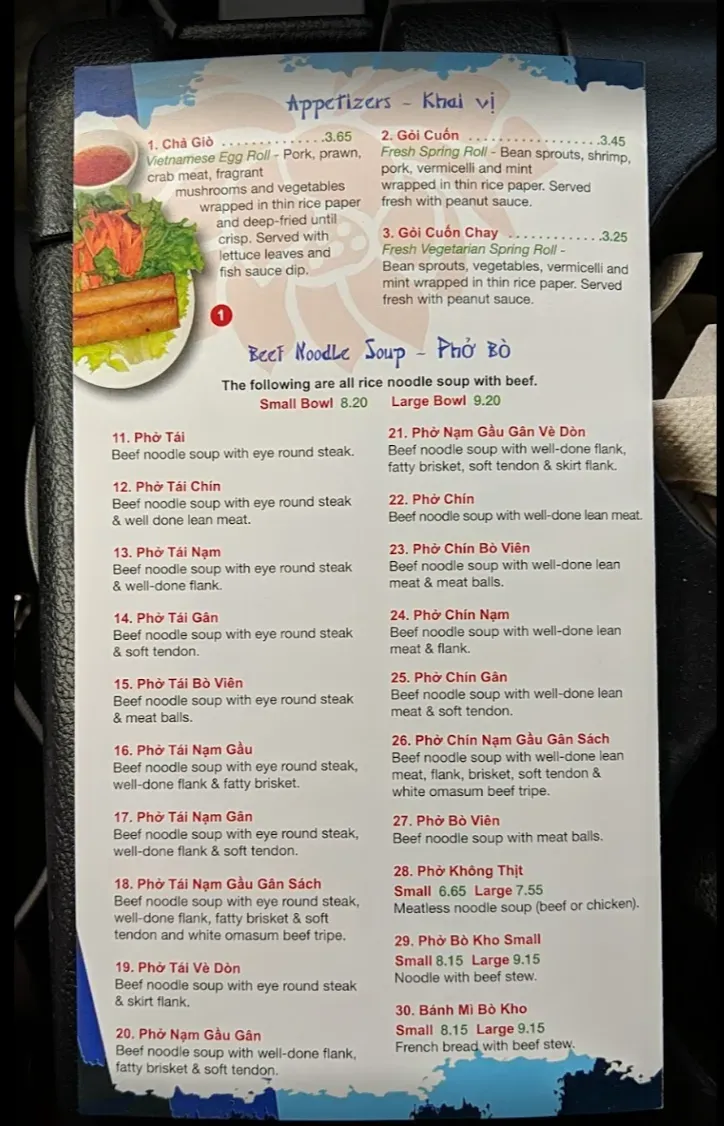 Appetizers - Khai vị
1. Chả Giò ..............3.65
Vietnamese Egg Roll - Pork, prawn,
crab meat, fragrant
mushrooms and vegetables
wrapped in thin rice paper
and deep-fried until
crisp. Served with
lettuce leaves and
fish sauce dip.
1
2. Gỏi Cuốn ..................3.45
Fresh Spring Roll - Bean sprouts, shrimp,
pork, vermicelli and mint
wrapped in thin rice paper. Served
fresh with peanut sauce.
3. Gỏi Cuốn Chay ............3.25
Fresh Vegetarian Spring Roll -
Bean sprouts, vegetables, vermicelli and
mint wrapped in thin rice paper. Served
fresh with peanut sauce.
Beef Noodle Soup - Phở Bò
The following are all rice noodle soup with beef.
Small Bowl 8.20 Large Bowl 9.20
11. Phở Tái
Beef noodle soup with eye round steak.
12. Phở Tái Chín
Beef noodle soup with eye round steak
& well done lean meat.
13. Phở Tái Nạm
Beef noodle soup with eye round steak
& well-done flank.
14. Phở Tái Gân
Beef noodle soup with eye round steak
& soft tendon.
15. Phở Tái Bò Viên
Beef noodle soup with eye round steak
& meat balls.
16. Phở Tái Nạm Gầu
Beef noodle soup with eye round steak,
well-done flank & fatty brisket.
17. Phở Tái Nạm Gân
Beef noodle soup with eye round steak,
well-done flank & soft tendon.
18. Phở Tái Nạm Gầu Gân Sách
Beef noodle soup with eye round steak,
well-done flank, fatty brisket & soft
tendon and white omasum beef tripe.
19. Phở Tái Vè Dòn
Beef noodle soup with eye round steak
& skirt flank.
20. Phở Nạm Gầu Gân
Beef noodle soup with well-done flank,
fatty brisket & soft tendon.
21. Phở Nạm Gầu Gân Vè Dòn
Beef noodle soup with well-done flank,
fatty brisket, soft tendon & skirt flank.
22. Phở Chín
Beef noodle soup with well-done lean meat.
23. Phở Chín Bò Viên
Beef noodle soup with well-done lean
meat & meat balls.
24. Phở Chín Nạm
Beef noodle soup with well-done lean
meat & flank.
25. Phở Chín Gân
Beef noodle soup with well-done lean
meat & soft tendon.
26. Phở Chín Nạm Gầu Gân Sách
Beef noodle soup with well-done lean
meat, flank, brisket, soft tendon &
white omasum beef tripe.
27. Phở Bò Viên
Beef noodle soup with meat balls.
28. Phở Không Thịt
Small 6.65 Large 7.55
Meatless noodle soup (beef or chicken).
29. Phở Bò Kho Small
Small 8.15 Large 9.15
Noodle with beef stew.
30. Bánh Mì Bò Kho
Small 8.15 Large 9.15
French bread with beef stew.